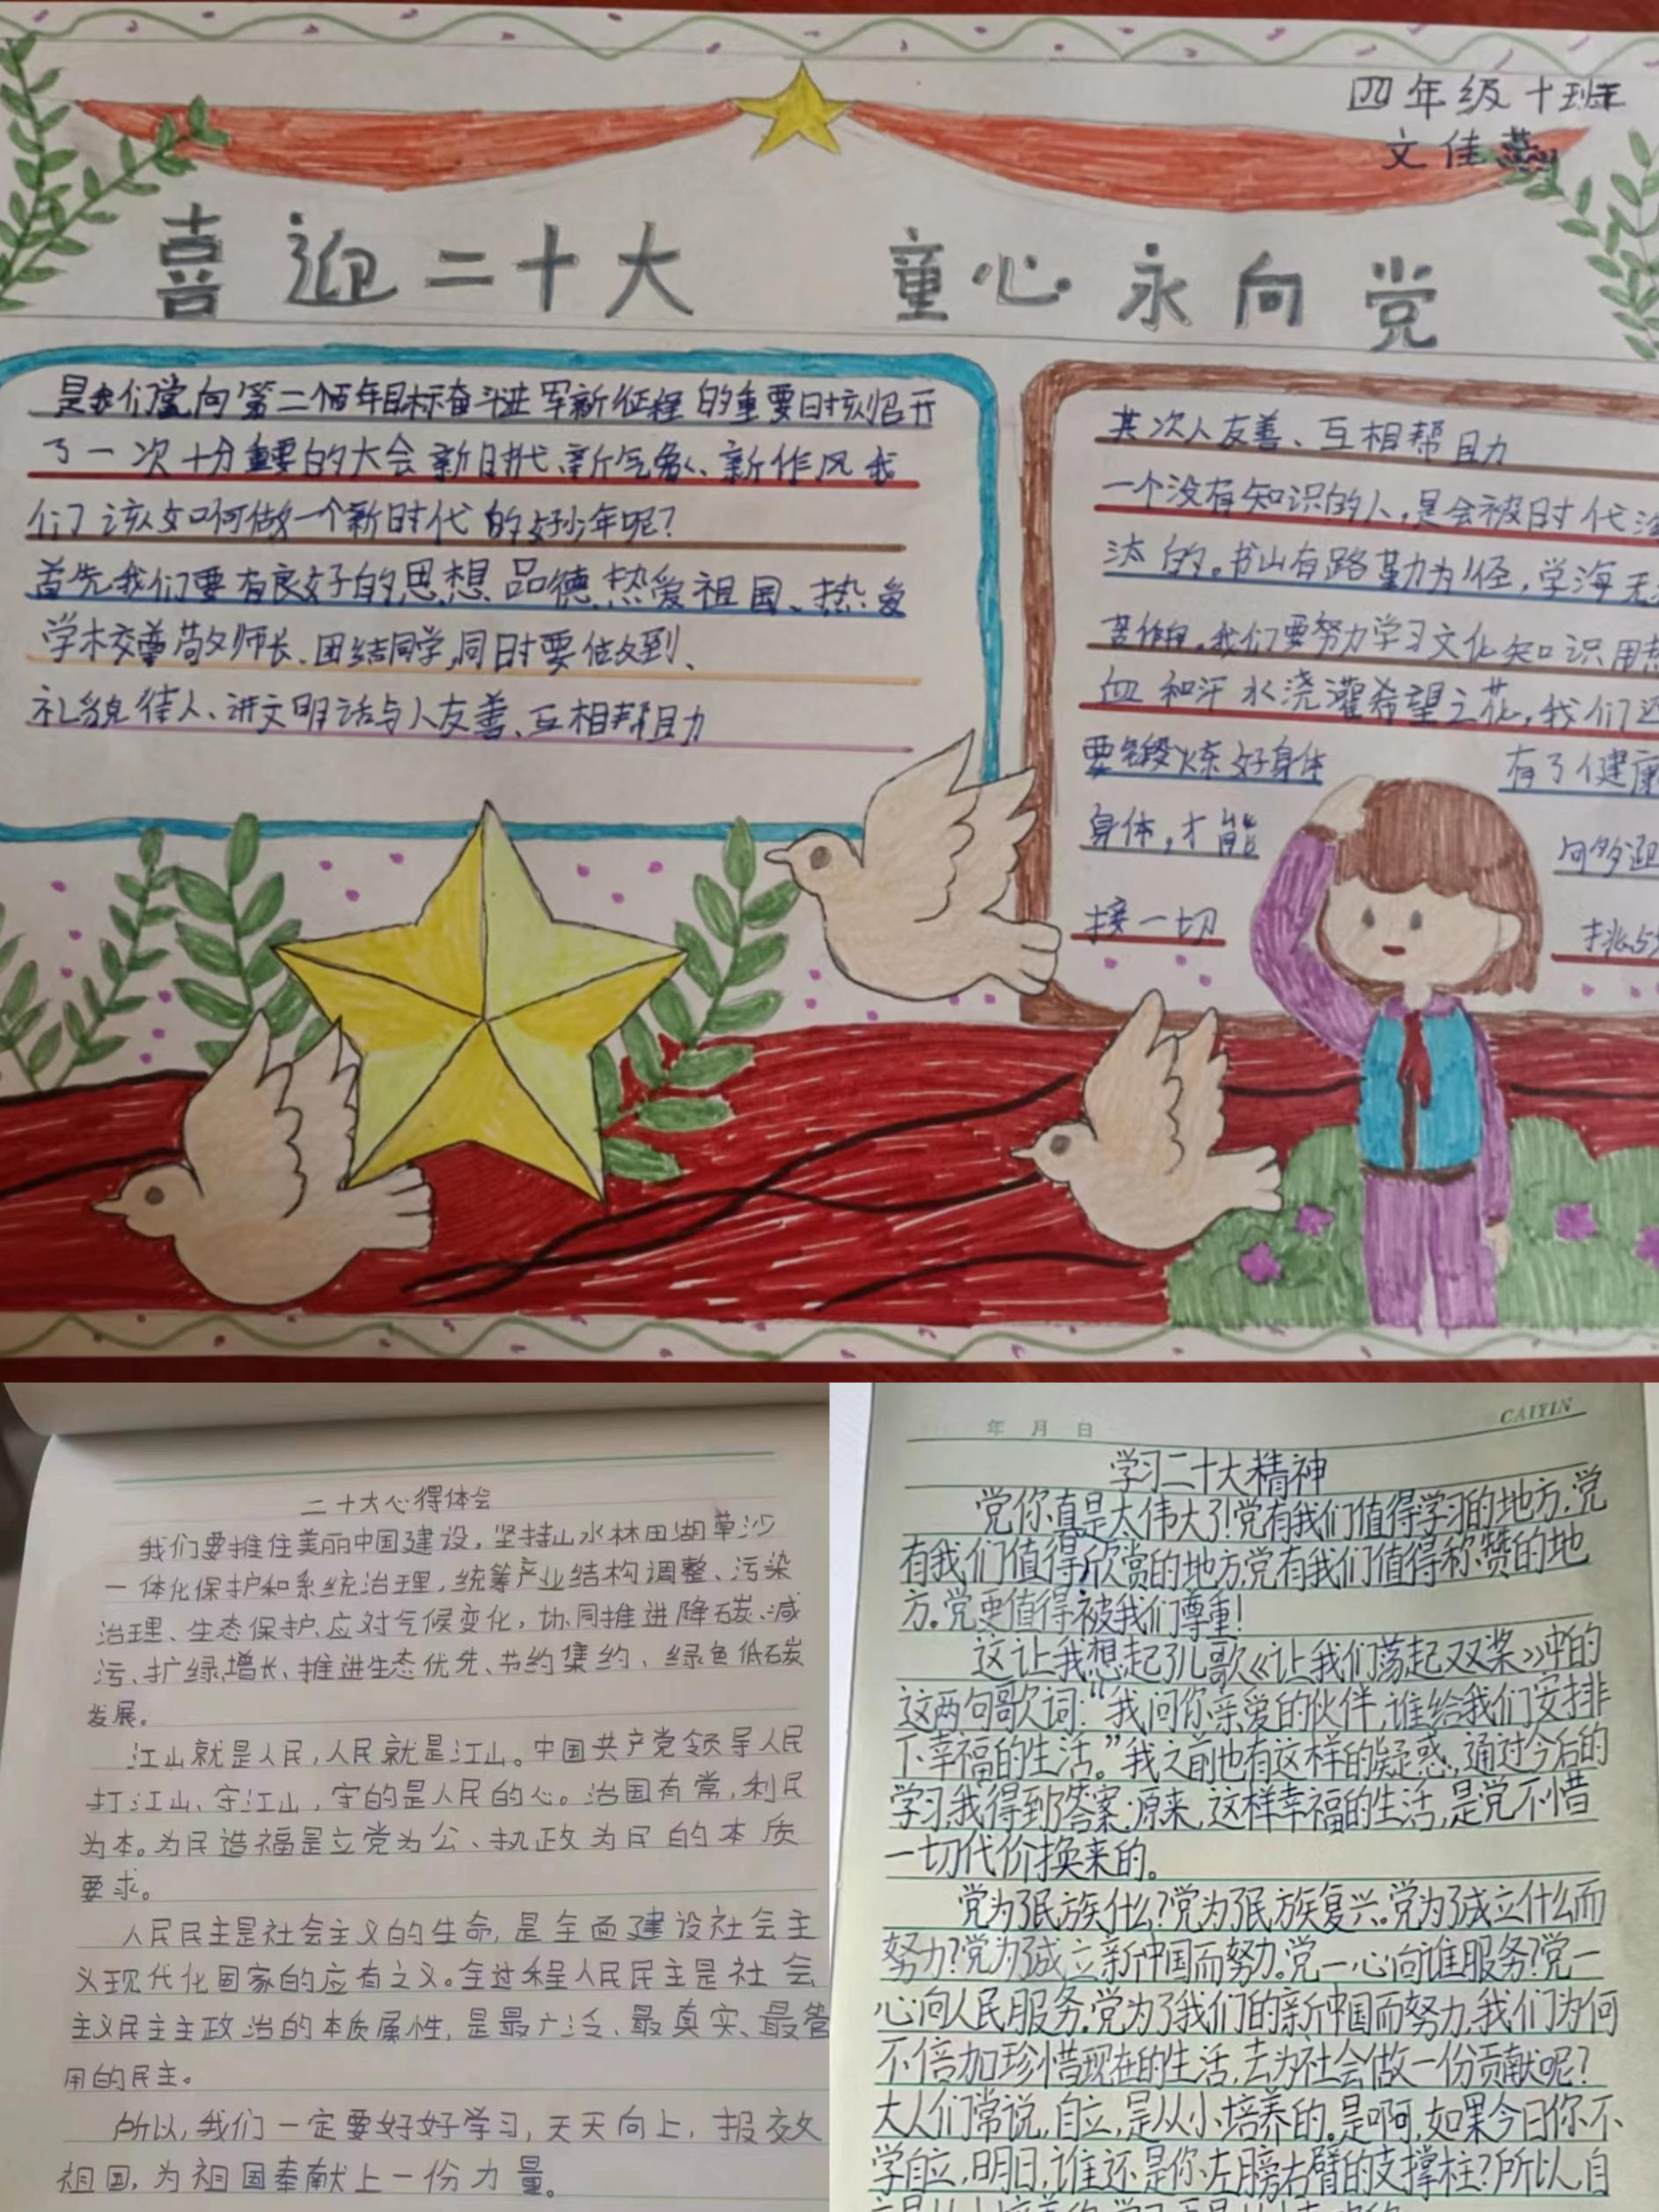 四年级十班
文佳燕
喜迎二十大 童心永向党
是我们党向第二个百年目标奋斗进军新征程的重要时刻召开
了一次十分重要的大会新时代、新气象、新作风我
们该如何做一个新时代的好少年呢？
首先我们要有良好的思想品德热爱祖国、热爱
学校尊敬师长、团结同学,同时要做到、
礼貌待人、讲文明话与人友善、互相帮助
其次人友善、互相帮助
一个没有知识的人,是会被时代淘
汰的。书山有路勤为径,学海无
苦作舟。我们要努力学习文化知识用
血和汗水浇灌希望之花,我们还
要锻炼好身体 有了健康
身体,才能 够迎
接一切 挑战
二十大心得体会
我们要推住美丽中国建设,坚持山水林田湖草沙
一体化保护和系统治理,统筹产业结构调整、污染
治理、生态保护、应对气候变化,协同推进降碳、减
污、扩绿、增长、推进生态优先、节约集约、绿色低碳
发展。
江山就是人民,人民就是江山。中国共产党领导人民
打江山、守江山,守的是人民的心。治国有常,利民
为本。为民造福是立党为公、执政为民的本质
要求。
人民民主是社会主义的生命,是全面建设社会主
义现代化国家的应有之义。全过程人民民主是社会
主义民主主政治的本质属性,是最广泛、最真实、最管
用的民主。
所以,我们一定要好好学习,天天向上,报效
祖国,为祖国奉献上一份力量。
年 月 日
CAIYIN
学习二十大精神
党你真是太伟大了!党有我们值得学习的地方,党
有我们值得欣赏的地方,党有我们值得称赞的地
方。党更值得被我们尊重!
这让我想起了儿歌《让我们荡起双桨》中的
这两句歌词:“我问你亲爱的伙伴,谁给我们安排
下幸福的生活。”我之前也有这样的疑惑,通过今后的
学习,我得到了答案:原来,这样幸福的生活,是党不惜
一切代价换来的。
党为了民族什么?党为了民族复兴。党为了成立什么而
努力?党为了成立新中国而努力。党一心向谁服务?党一
心向人民服务。党为了我们的新中国而努力,我们为何
不倍加珍惜现在的生活,去为社会做一份贡献呢?
大人们常说,自立,是从小培养的。是啊,如果今日你不
学自立,明日,谁还是你左膀右臂的支撑柱?所以,自